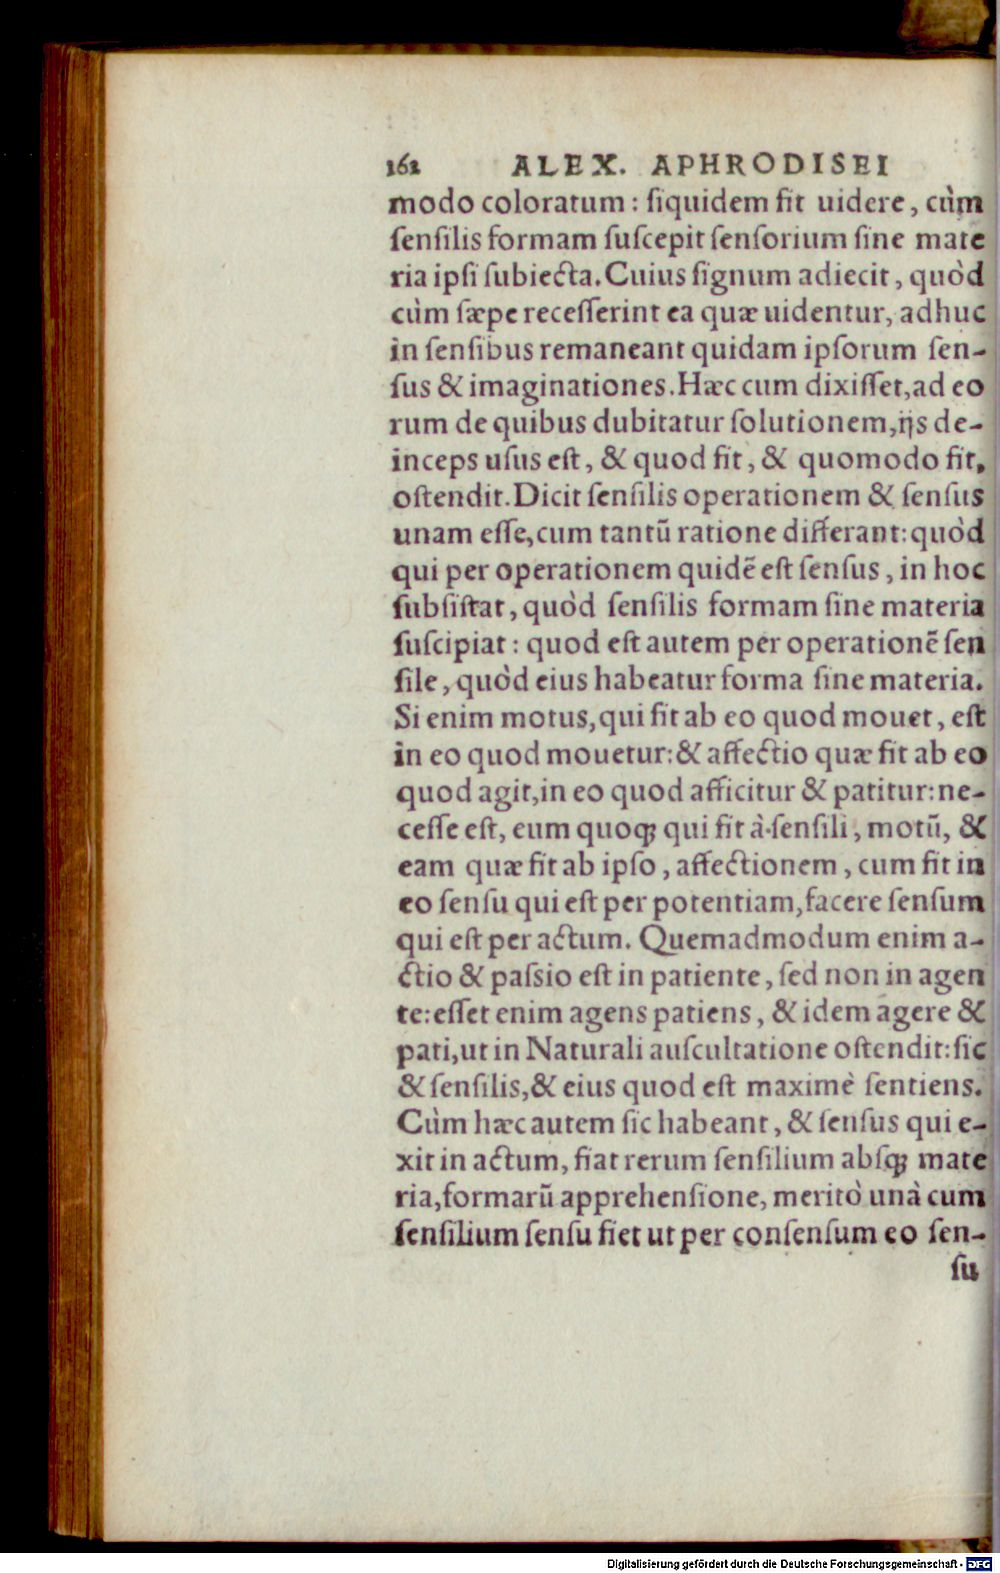 162 ALEX. APHRODISEI
modo coloratum: ſiquidem fit uidere, cùm
ſenſilis formam ſuſcepit ſenſorium ſine mate
ria ipſi ſubiecta. Cuius ſignum adiecit, quòd
cùm ſæpe receſſerint ea quæ uidentur, adhuc
in ſenſibus remaneant quidam ipſorum ſen-
ſus & imaginationes. Hæc cum dixiſſet, ad eo
rum de quibus dubitatur ſolutionem, ijs de-
inceps uſus eſt, & quod fit, & quomodo fit,
oſtendit. Dicit ſenſilis operationem & ſenſus
unam eſſe, cum tantũ ratione differant: quòd
qui per operationem quidẽ eſt ſenſus, in hoc
ſubſiſtat, quòd ſenſilis formam ſine materia
ſuſcipiat: quod eſt autem per operationẽ ſen
ſile, quòd eius habeatur forma ſine materia.
Si enim motus, qui fit ab eo quod mouet, eſt
in eo quod mouetur: & affectio quæ fit ab eo
quod agit, in eo quod afficitur & patitur: ne-
ceſſe eſt, eum quoqꝫ qui fit à ſenſili, motũ, &
eam quæ fit ab ipſo, affectionem, cum fit in
eo ſenſu qui eſt per potentiam, facere ſenſum
qui eſt per actum. Quemadmodum enim a-
ctio & paſsio eſt in patiente, ſed non in agen
te: eſſet enim agens patiens, & idem agere &
pati, ut in Naturali auſcultatione oſtendit: ſic
& ſenſilis, & eius quod eſt maximè ſentiens.
Cùm hæc autem ſic habeant, & ſenſus qui e-
xit in actum, fiat rerum ſenſilium absqꝫ mate
ria, formarũ apprehenſione, meritò unà cum
ſenſilium ſenſu fiet ut per conſenſum eo ſen-
ſu
Digitalisierung gefördert durch die Deutsche Forschungsgemeinschaft - DFG